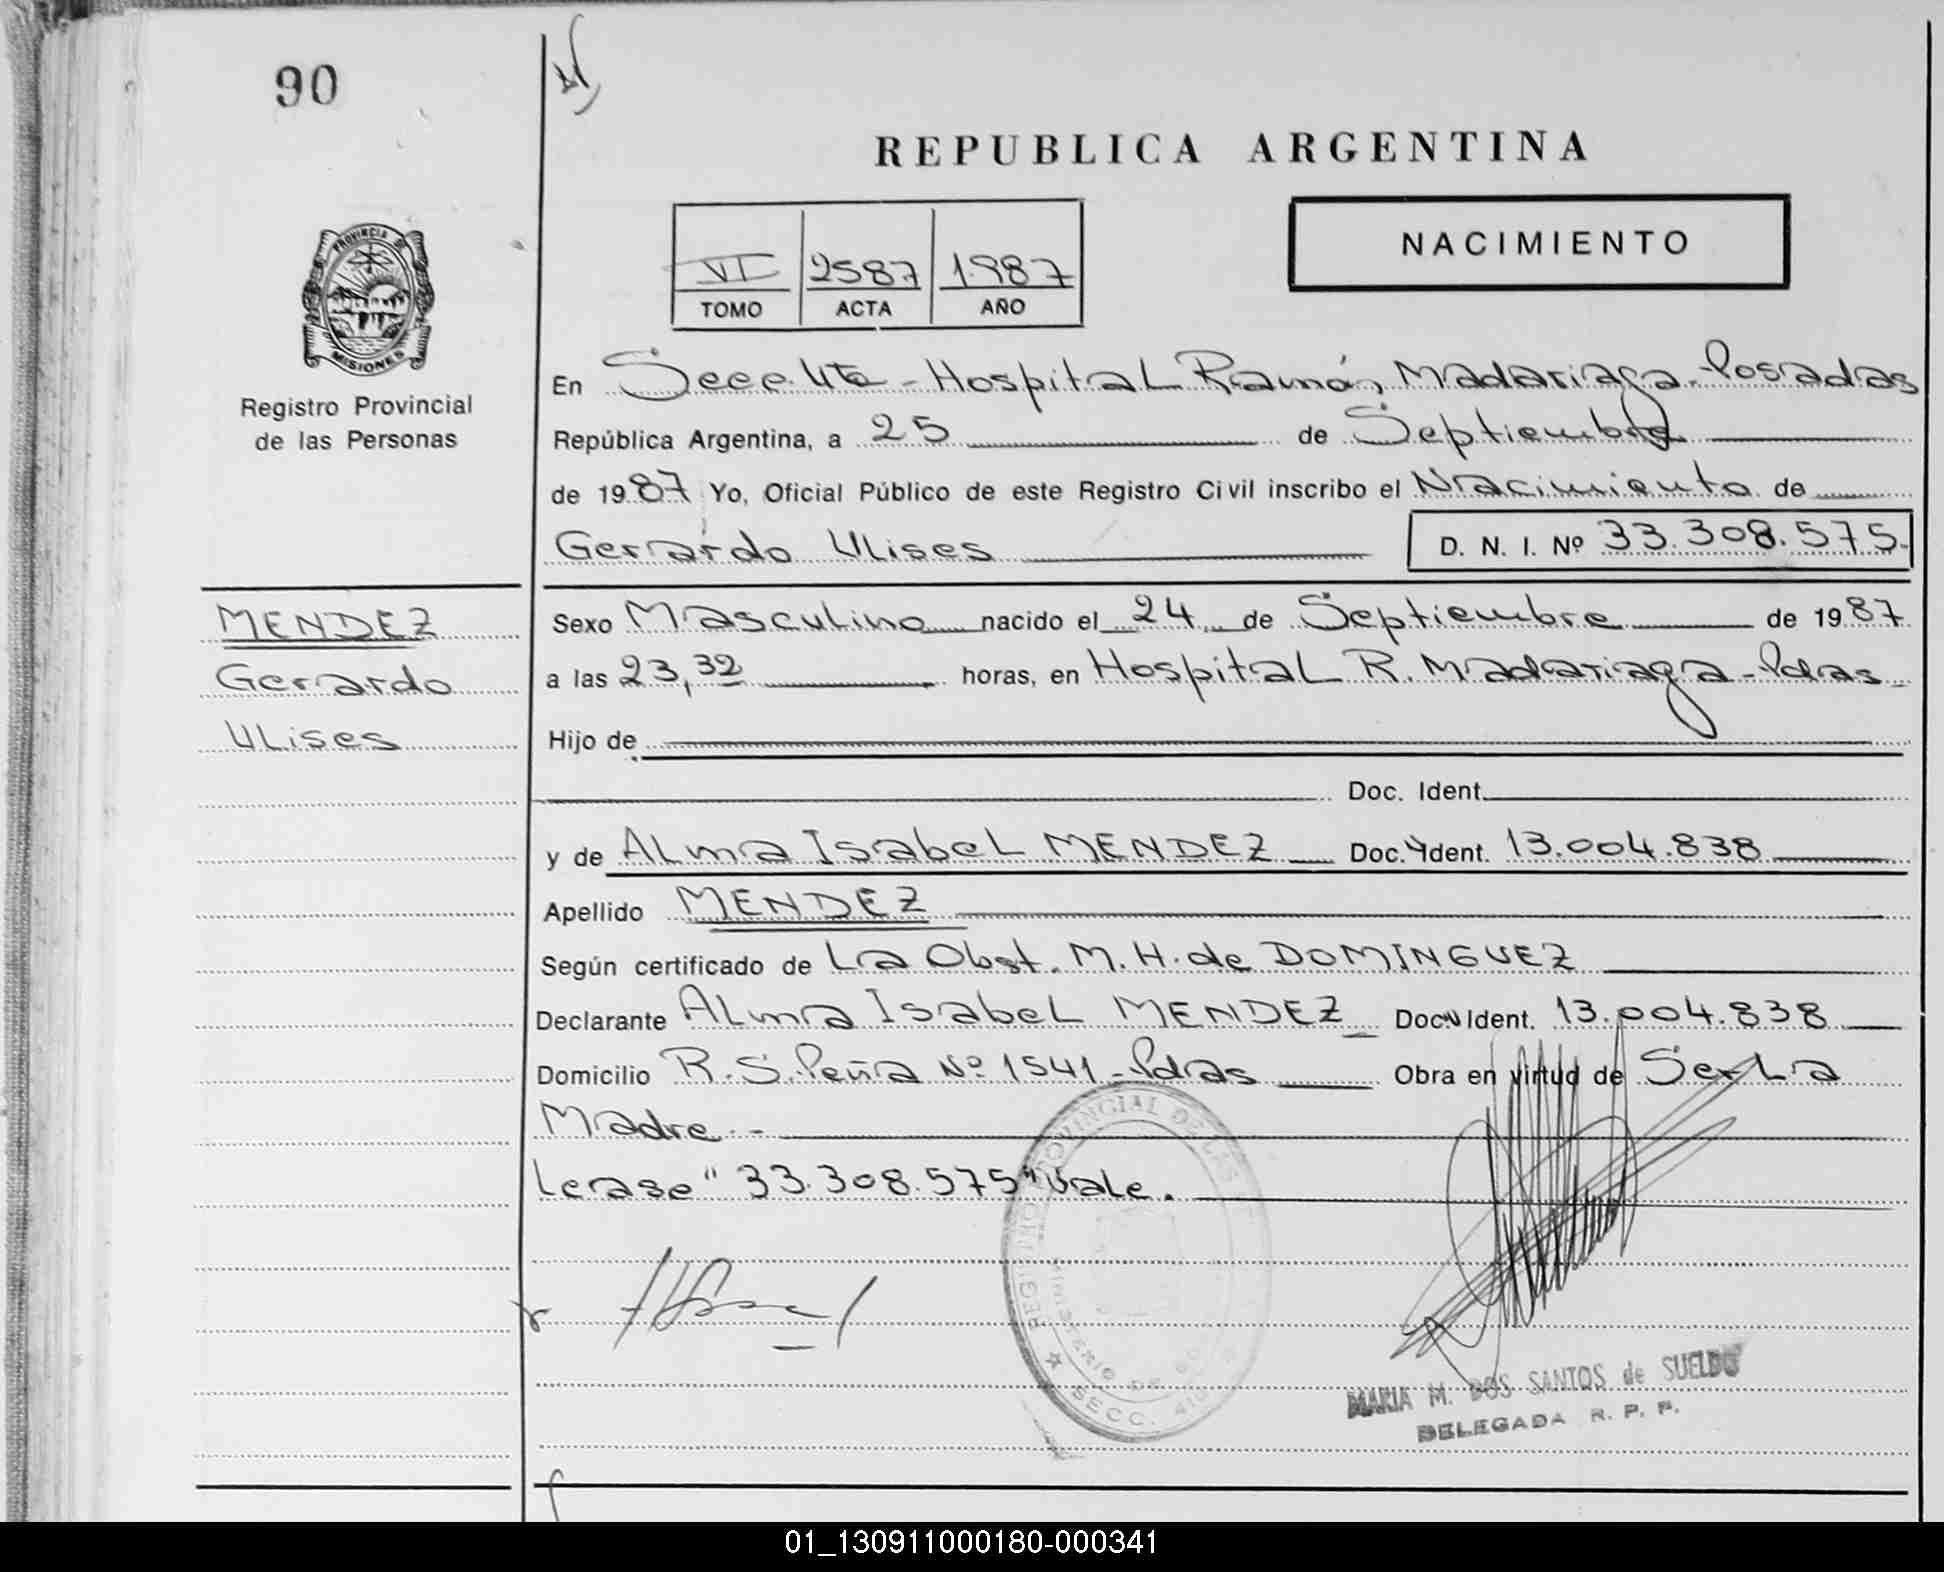 90
REPUBLICA ARGENTINA
VI 2587 1987
TOMO ACTA AÑO
NACIMIENTO
PROVINCIA DE
MISIONES
Registro Provincial
de las Personas
En Secc. 4ta - Hospital Ramón Madariaga - Posadas
República Argentina, a 25 de Septiembre
de 1987 Yo, Oficial Público de este Registro Civil inscribo el Nacimiento de
Gerardo Ulises D. N. I. Nº 33.308.575.
MENDEZ
Gerardo
Ulises
Sexo Masculino nacido el 24 de Septiembre de 1987
a las 23,32 horas, en Hospital R. Madariaga - Pdas.
Hijo de
Doc. Ident.
y de Alma Isabel MENDEZ Doc. Ident. 13.004.838
Apellido MENDEZ
Según certificado de La Obst. M. H. de DOMINGUEZ
Declarante Alma Isabel MENDEZ Doc. Ident. 13.004.838
Domicilio R. S. Peña Nº 1541 - Pdas Obra en virtud de Ser La
Madre. -
Lease "33.308.575" Vale.
REGISTRO PROVINCIAL DE LAS
MINISTERIO DE GO
SECC. 4ta
MARIA M. DOS SANTOS de SUELDO
DELEGADA R. P. P.
01_130911000180-000341